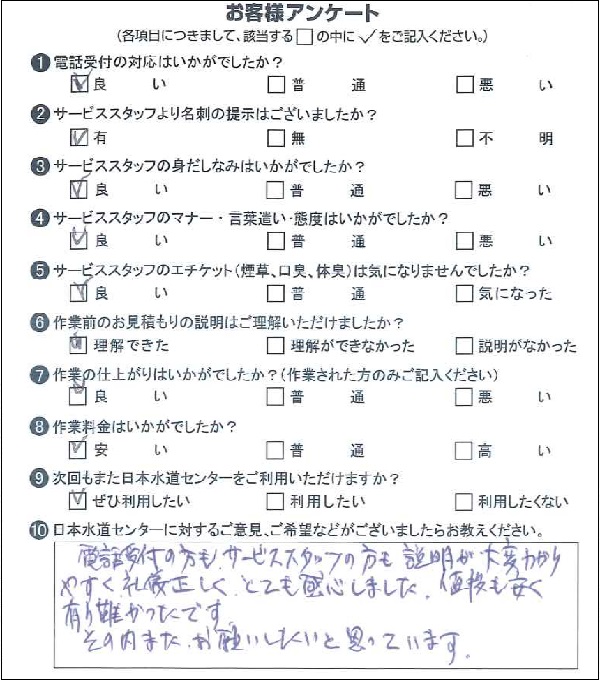 お客様アンケート
(各項目につきまして、該当する□の中に✓をご記入ください。)
❶ 電話受付の対応はいかがでしたか?
☑ 良い □ 普通 □ 悪い
❷ サービススタッフより名刺の提示はございましたか?
☑ 有 □ 無 □ 不明
❸ サービススタッフの身だしなみはいかがでしたか?
☑ 良い □ 普通 □ 悪い
❹ サービススタッフのマナー・言葉遣い・態度はいかがでしたか?
☑ 良い □ 普通 □ 悪い
❺ サービススタッフのエチケット(煙草、口臭、体臭)は気になりませんでしたか?
☑ 良い □ 普通 □ 気になった
❻ 作業前のお見積もりの説明はご理解いただけましたか?
☑ 理解できた □ 理解ができなかった □ 説明がなかった
❼ 作業の仕上がりはいかがでしたか?(作業された方のみご記入ください)
☑ 良い □ 普通 □ 悪い
❽ 作業料金はいかがでしたか?
☑ 安い □ 普通 □ 高い
❾ 次回もまた日本水道センターをご利用いただけますか?
☑ ぜひ利用したい □ 利用したい □ 利用したくない
❿ 日本水道センターに対するご意見、ご希望などがございましたらお教えください。
電話受付の方も、サービススタッフの方も説明が大変わかり
やすく礼儀正しく、とても感心しました。値段も安く
有り難かったです。
その内また、お願いしたいと思っています。